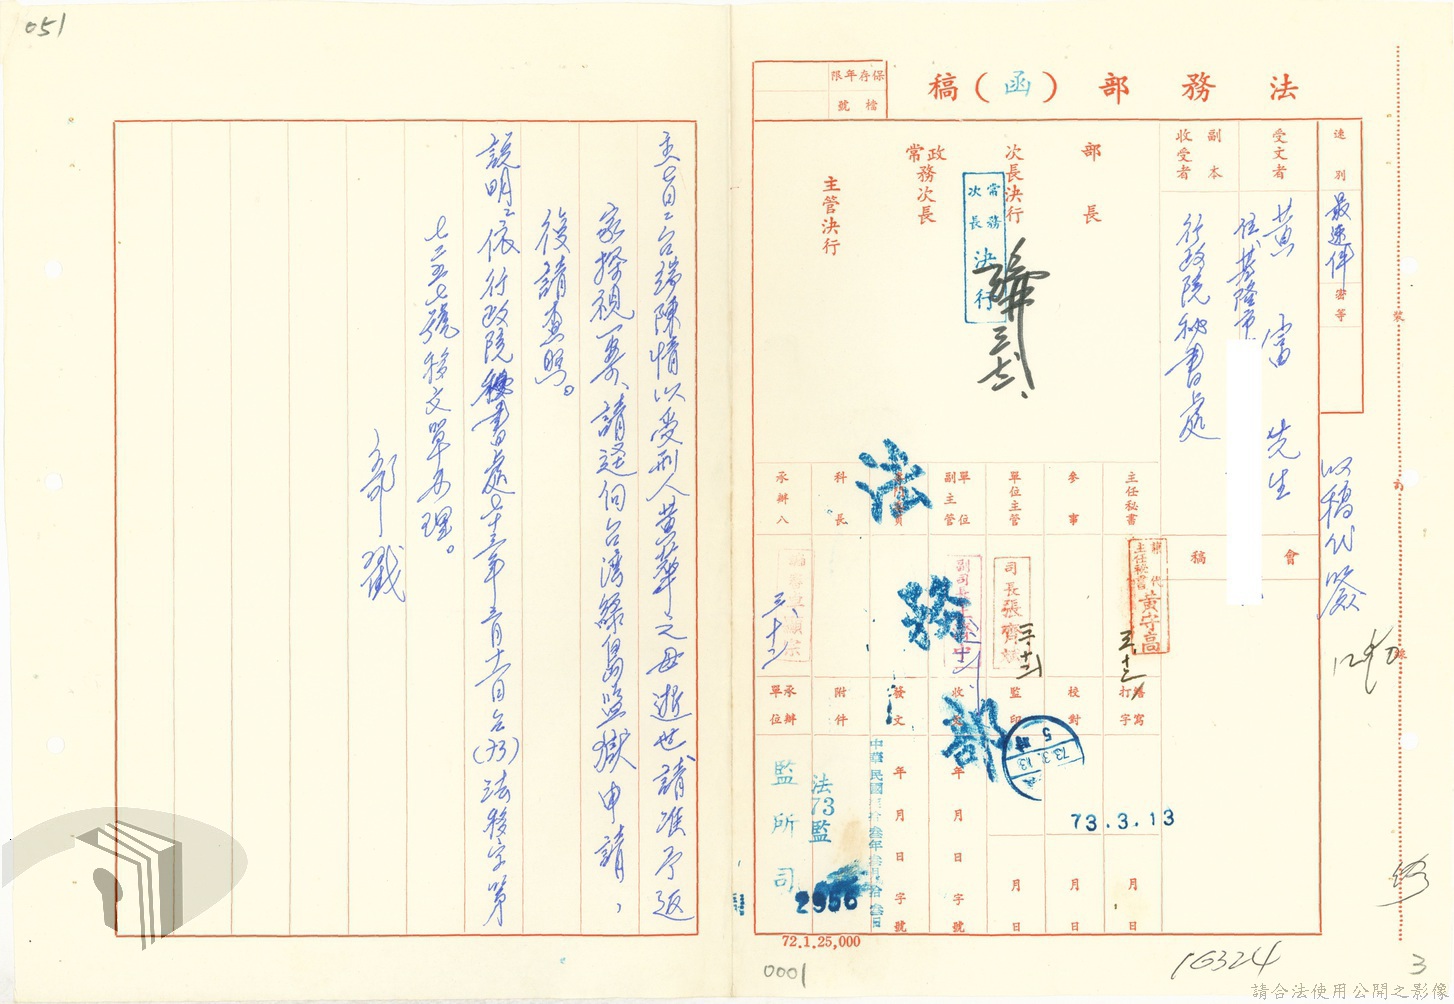 051
法務部（函）稿
保存年限
檔號
速別
最速件
密等
受文者
黃 富 先生
住基隆市
副本收受者
行政院秘書處
部長
次長決行
常務次長決行
政務次長
常
主管決行
以稿代簽
會稿
主任秘書
參事
單位主管
單位副主管
科長
承辦人
主任秘書
黃守高
代
三、十三
司長張齊斌
副司長
三、十二
法務部
繕寫打字
校對
監印
收文
發文
附件
承辦單位
73.3.13
73.3.13
5
月日
月日
年月日字號
年月日字號
中華民國柒拾叁年叁月拾叁日
法73監
2956
監所司
裝
訂
線
72.1.25,000
0001
16324
3
請合法使用公開之影像
主旨：台端陳情以受刑人黃華之母逝世，請准予返
家探視一事，請逕向台灣綠島監獄申請，
復請查照。
說明：依行政院秘書處七十三年三月十二日台(73)法移字第
七二五七號移文單辦理。
部戳